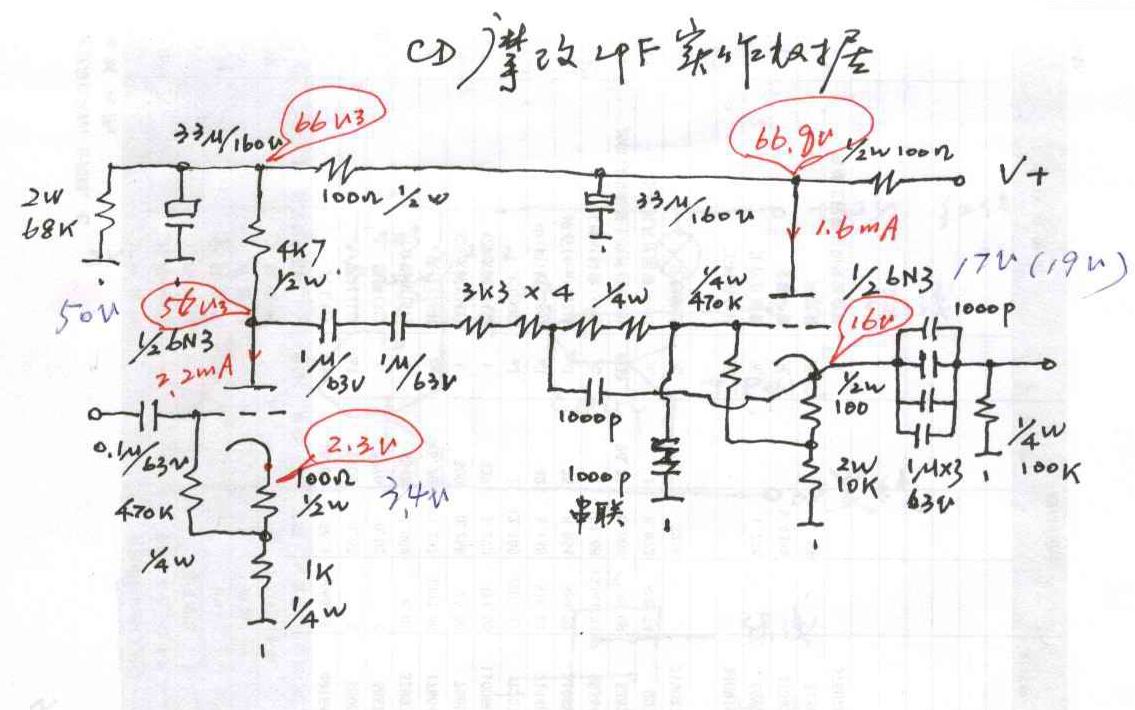 CD 摩改 LPF 实作数据
33μ/160v
66v3
66.9v
1/2w 100Ω
V+
2w
68K
100Ω 1/2w
33μ/160v
1.6mA
4K7
1/2w
50v
56v3
3K3 × 4 1/4w
1/4w
470K
1/2 6N3
17v (19v)
1000p
16v
1/2 6N3
2.2mA
1μ/63v
1μ/63v
1/2w
100
1000p
0.1μ/63v
2.3v
100Ω
1/2w
3.4v
1000p
串联
2w
10K
1μ×3
63v
1/4w
100K
470K
1/4w
1K
1/4w